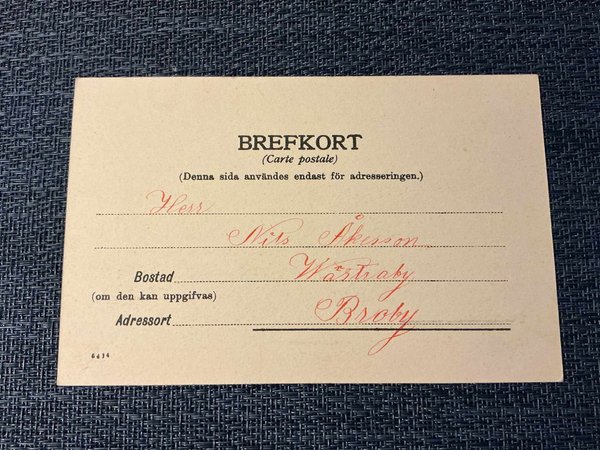 BREFKORT
(Carte postale)
(Denna sida användes endast för adresseringen.)
Herr
Nils Åkesson
Bostad Wästraby
(om den kan uppgifvas)
Adressort Broby
6434